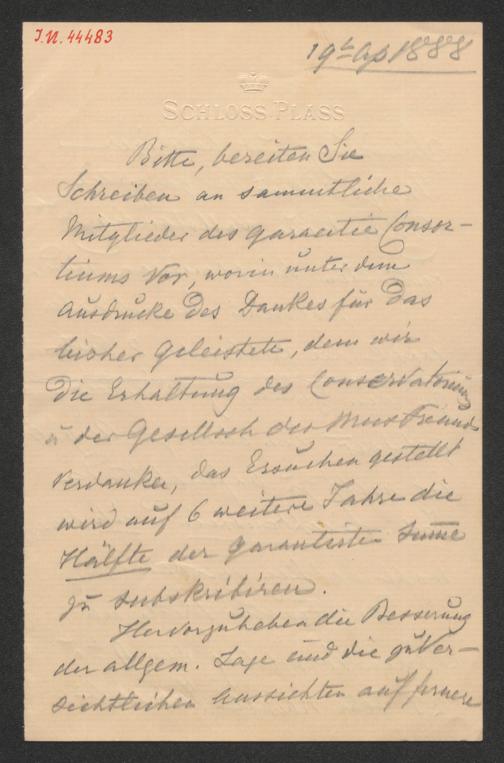 I.N. 44483
19t Ap 1888
SCHLOSS PLASS
Bitte, bereiten Sie
Schreiben an sammtliche
Mitglieder des garantie Consor-
tiums vor, worin unter dem
Ausdrucke des Dankes für das
bisher Geleistete, dem wir
die Erhaltung des Conservatoriums
u der Gesellsch der Musikfreunde
verdanken, das Ersuchen gestellt
wird auf 6 weitere Jahre die
Hälfte der garantirten Summe
zu subskribiren.
Hervorzuheben die Besserung
der allgem. Lage und die zuver-
sichtlichen Aussichten auf fernere